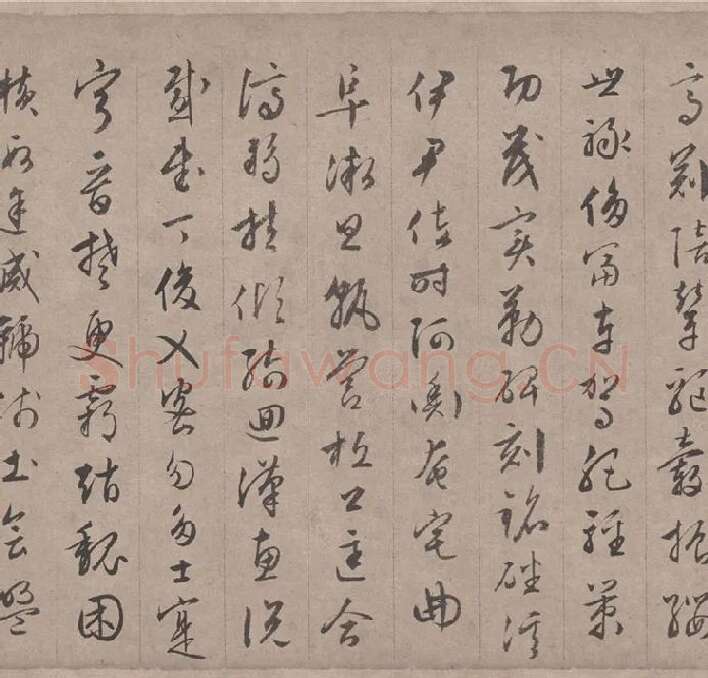 高冠陪輦驅轂振纓
世祿侈富車駕肥輕策
功茂實勒碑刻銘磻溪
伊尹佐時阿衡奄宅曲
阜微旦孰營桓公匡合
濟弱扶傾綺迴漢惠說
感武丁俊乂密勿多士寔
寧晉楚更霸趙魏困
橫假途滅虢踐土會盟
Shufawang.CN